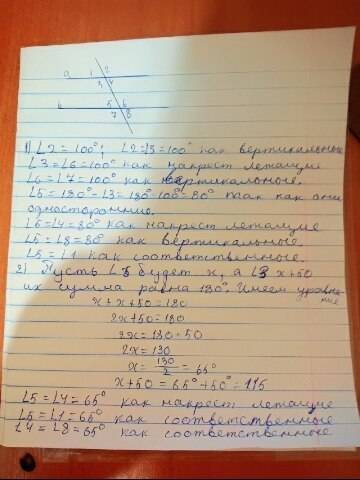 a 1 2
3 4
b 5 6
7 8
1) ∠2=100°; ∠2=∠3=100° как вертикальные
∠3=∠6=100° как накрест лежащие
∠6=∠7=100° как вертикальные.
∠5=180°-∠3=180°-100°=80° так как они
односторонние.
∠5=∠4=80° как накрест лежащие
∠5=∠8=80° как вертикальные.
∠5=∠1 как соответственные.
2) Пусть ∠5 будет x, а ∠3 x+50
их сумма равна 180°. Имеем уравнение
x+x+50=180
2x+50=180
2x=180-50
2x=130
x=130/2=65°
x+50=65°+50°=115
∠5=∠4=65° как накрест лежащие
∠5=∠1=65° как соответственные
∠4=∠8=65° как соответственные